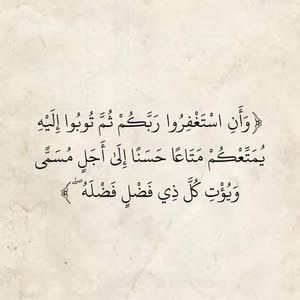 ﴿وَأَنِ اسْتَغْفِرُوا رَبَّكُمْ ثُمَّ تُوبُوا إِلَيْهِ
يُمَتِّعْكُمْ مَتَاعًا حَسَنًا إِلَىٰ أَجَلٍ مُسَمًّى
وَيُؤْتِ كُلَّ ذِي فَضْلٍ فَضْلَهُ ۖ﴾